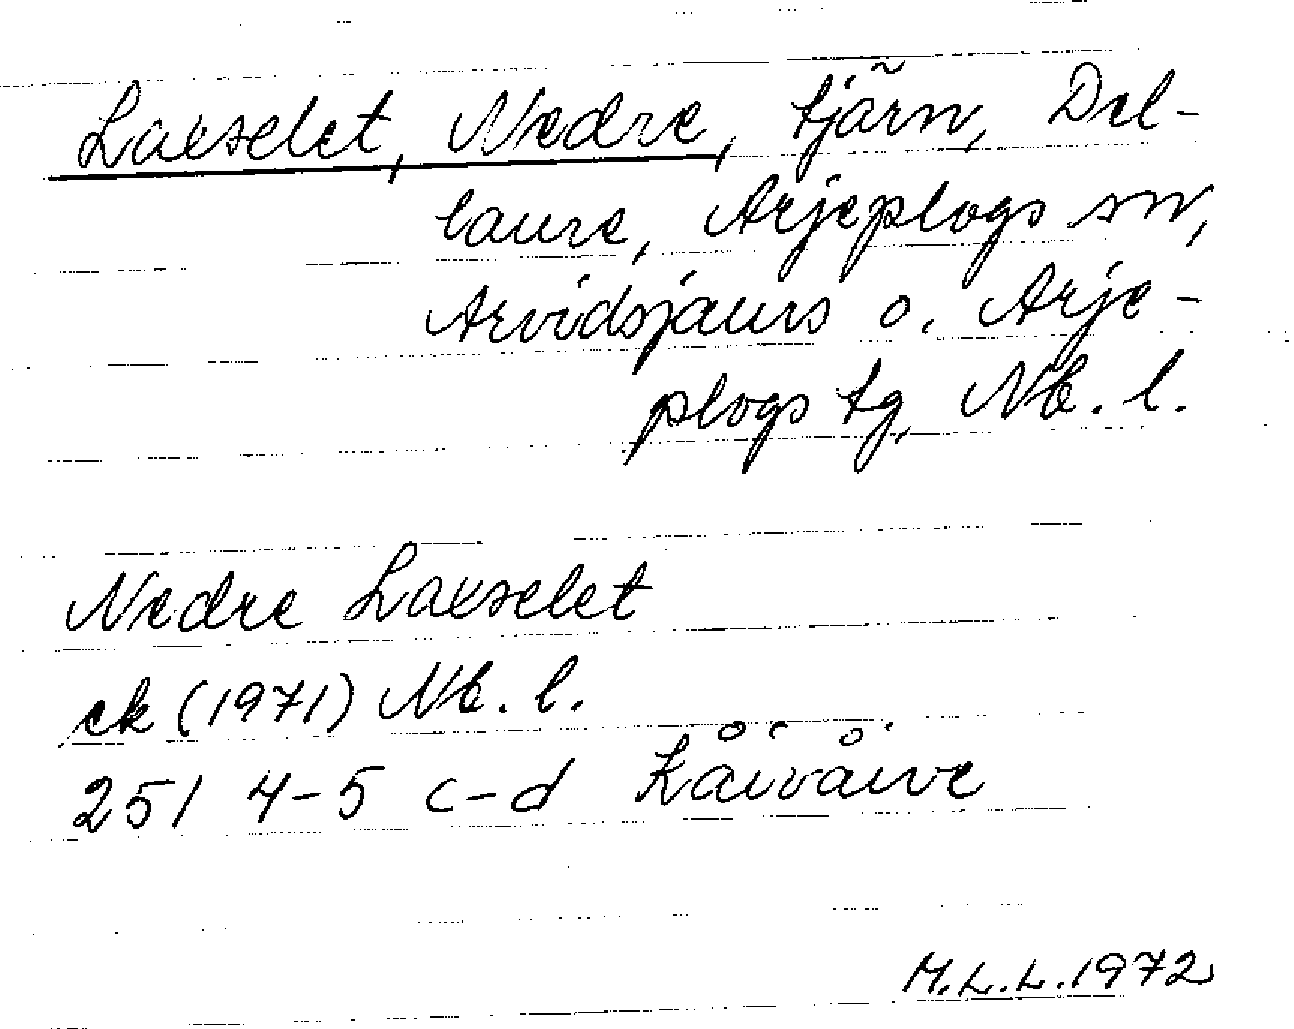 Laxselet, Nedre, tjärn, Del-
laure, Arjeplogs sn,
Arvidsjaurs o. Arje-
plogs tg, Nb. l.
Nedre Laxselet
ek (1971) Nb. l.
251 4-5 c-d Kåivåive
M.L.L. 1972